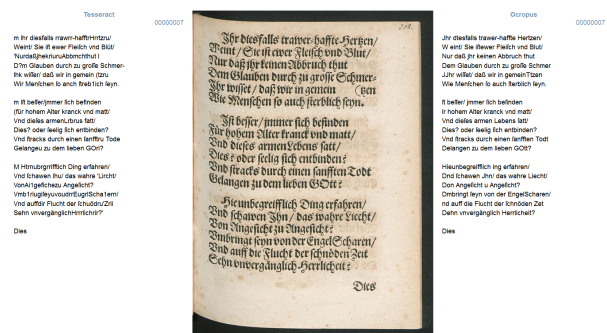 Tesseract
00000007
m Ihr diesfalls rrawrr-hafftrHrrtzru/
Weint/ Sie ift ewer Fleifch vnd Blüt/
Nurdaßjhrkeiruru Abbmchthut I
D?m Glauben durch zu große Schmer-
Ihk wiffet/ daß wir in gemein (tzru
Wir Menfchen fo auch ftreb1ich feyn.
ift beffer/jmmer fich befinden
(für hohem Alter kranck vnd matt/
Vnd diefes armenLrbrus fatt/
Dies? oder feelig fich entbinden?
Vnd ftracks durch einen fanfftru Tode
Gelangeu zu dem lieben GOrt?
M Htrnubrgrrifftich Ding erfahren/
Vnd fchawen Ihu/ das wahre 'Urcht/
VonAi1gefichezu Angeficht?
Vnd auffdir Flucht der fchuödrn/Zrii
Sehn vnvergänglich-Hrrrlichrir?'
Dies
212.
Ihr diesfalls trawer-haffte-Hertzen/
Weint/ Sie ist ewer Fleisch vnd Blut/
Nur daß jhr keinen Abbruch thut
Dem Glauben durch zu grosse Schmer-
Ihr wisset/ daß wir in gemein (tzen
Wie Menschen so auch sterblich seyn.
Ist besser/ jmmer sich befinden
Für hohem Alter kranck vnd matt/
Vnd dieses armen Lebens satt/
Dies? oder seelig sich entbinden?
Vnd stracks durch einen sanfften Todt
Gelangen zu dem lieben GOtt?
Hie unbegreifflich Ding erfahren/
Vnd schawen Ihn/ das wahre Liecht/
Von Angesicht zu Angesicht?
Vmbringt seyn von der Engel Scharen/
Vnd auff die Flucht der schnöden Zeit
Sehn vnvergänglich-Herrlicheit?
Dies
Ocropus
00000007
Jhr diesfalls trawer-haffte Hertzen/
W eint/ Sie iftewer Fleifch vnd Blut/
Nur daß jhr keinen Abbruch thut
Dem Glauben durch zu große Schmer
JJhr wiffet/ daß wir in gemeinTtzen
Wie Menfchen fo auch fterblich feyn.
ft beffer/ jmmer fich befinden
Ir hohem Alter kranck vnd matt/
Vnd dieles armen Lebens fatt/
Dies? oder feelig fich entbinden?
Vnd ftracks durch einen fanfften Todt
Gelangen zu dem lieben GOtt?
Hieunbegreifflich ing erfahren/
Vnd fchawen Jhn/ das wahre Liecht/
Don Angeficht u Angeficht?
Ombringt feyn von der EngelScharen/
nd auff die Flucht der fchnöden Zet
Dehn vnvergänglich Herrlicheit?
Dies